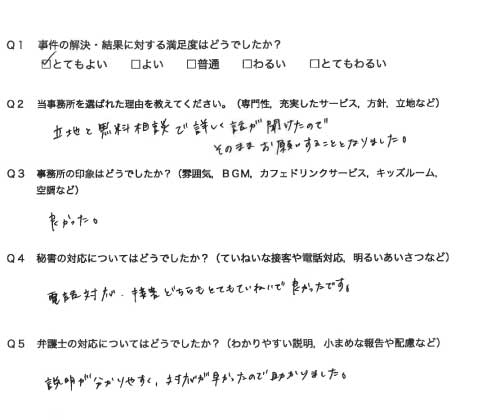 Q1 事件の解決・結果に対する満足度はどうでしたか？
☑とてもよい □よい □普通 □わるい □とてもわるい
Q2 当事務所を選ばれた理由を教えてください。（専門性，充実したサービス，方針，立地など）
立地と無料相談で詳しく話が聞けたので
そのままお願いすることとなりました。
Q3 事務所の印象はどうでしたか？（雰囲気，BGM，カフェドリンクサービス，キッズルーム，
空調など）
良かった。
Q4 秘書の対応についてはどうでしたか？（ていねいな接客や電話対応，明るいあいさつなど）
電話対応、接客どちらもとてもていねいで良かったです。
Q5 弁護士の対応についてはどうでしたか？（わかりやすい説明，小まめな報告や配慮など）
説明が分かりやすく、対応が早かったので助かりました。